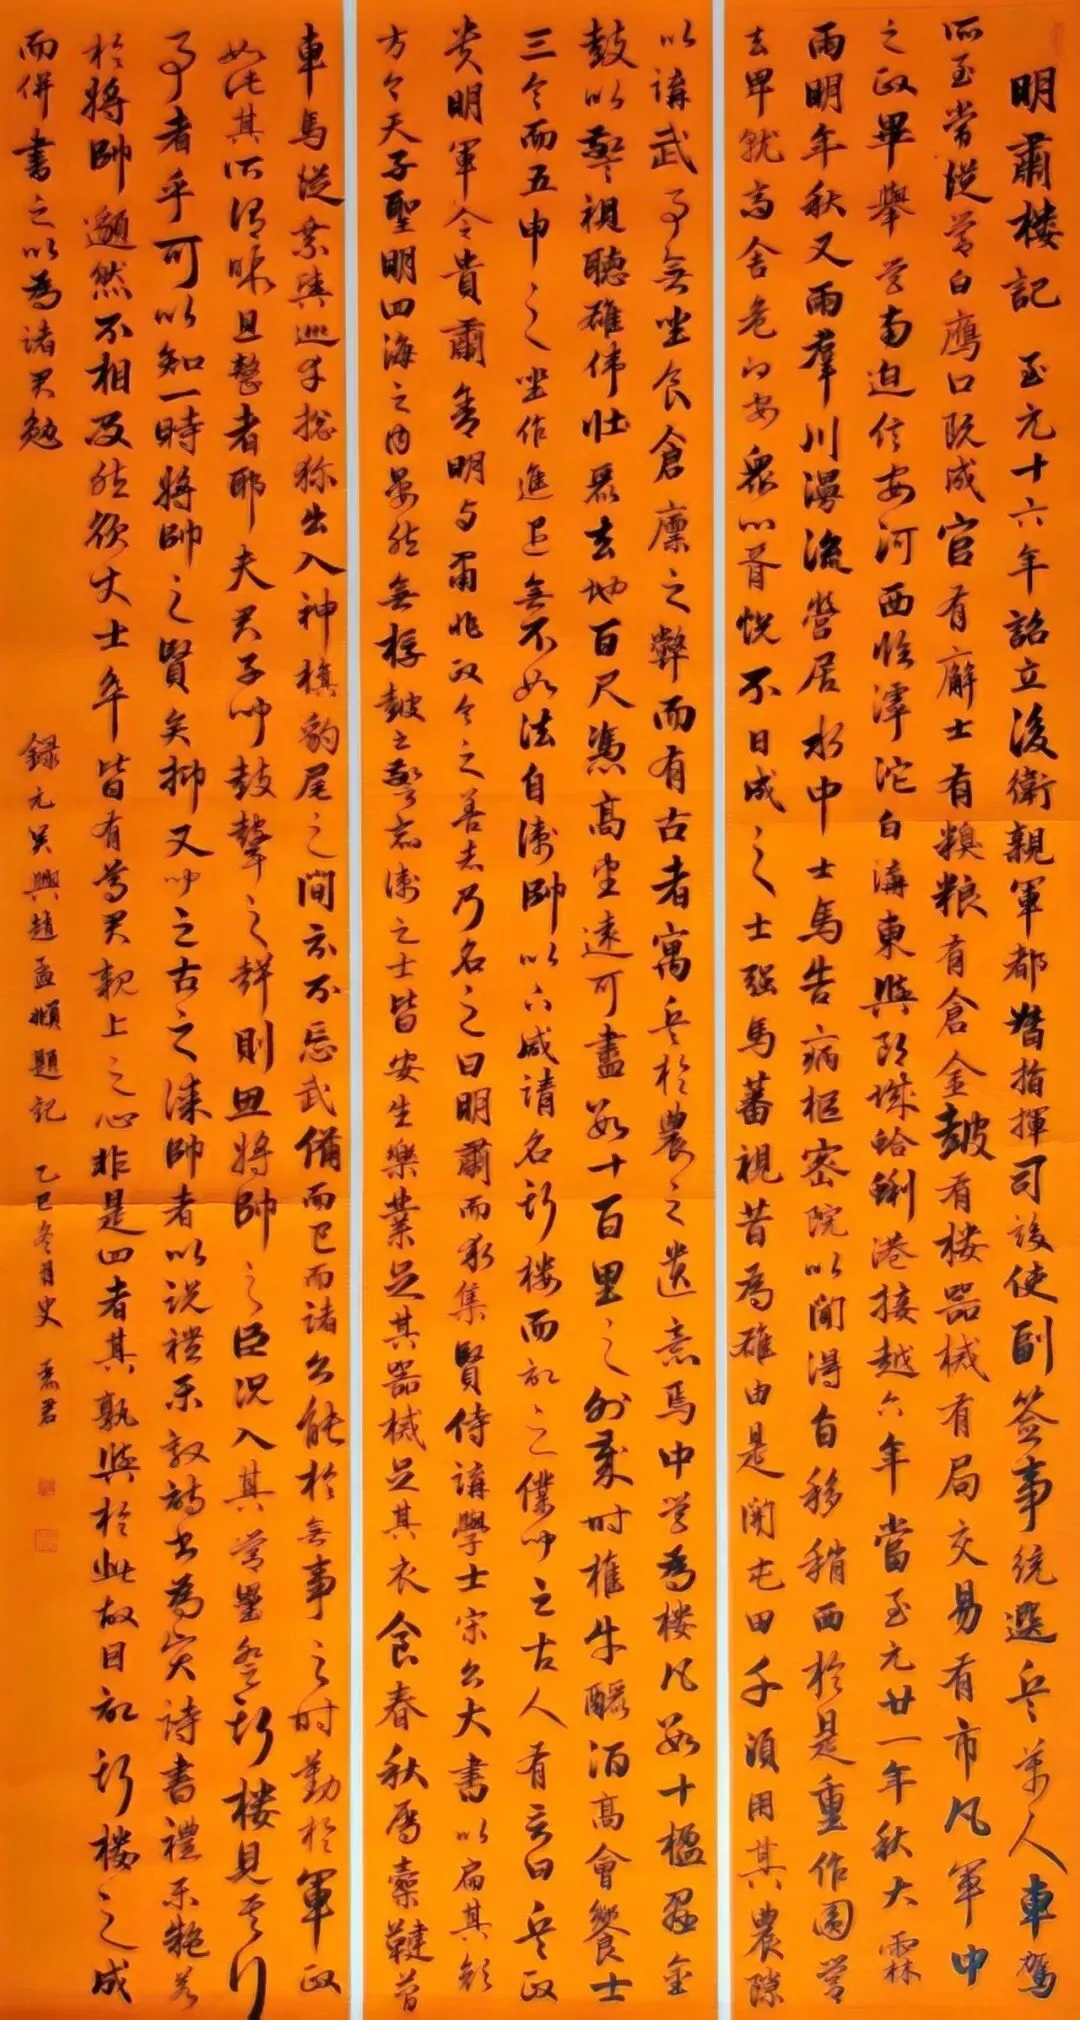 明肅樓記 至元十六年詔立後衛親軍都督指揮司設使副簽事統選兵萬人車駕
所至常從營白鴈口既成官有廨士有糗粮有倉金鼓有樓器械有局交易有市凡軍中
之政畢舉營南迫信安河西臨滹沱白溝東與郎城蛤蜊港接越六年當至元廿一年秋大霖
雨明年秋又雨羣川漫流營居水中士馬告病樞密院以聞得旨移稍西於是重作圖營
去卑就高舍危即安眾心胥悅不日成之士强馬蕃視昔為雄由是開屯田千頃用其農隙
以講武事無坐食倉廩之弊而有古者寓兵於農之遺意焉中營為樓凡數十楹置金
鼓以警視聽雄偉壯麗去地百尺憑高望遠可盡數十百里之外歲時椎牛釃酒高會饗士
三令而五申之坐作進退無不如法自衛帥以下咸請名斯樓而記之僕聞之古人有言曰兵政
貴明軍令貴肅令明與肅非政令之善者乃名之曰明肅而求集賢侍講學士宋公大書以扁其顏
方今天子聖明四海之內晏然無桴鼓之警宿衛之士皆安生樂業足其器械足其衣食春秋屬櫜鞬首
車馬從乘輿巡守搃狝出入神旗豹尾之間亦不忘武備而已而諸公能於無事之時勤於軍政
如此其所謂昧且整者耶夫君子聞鼓鼙之聲則思將帥之臣況入其營壘登斯樓見其行
事者乎可以知一時將帥之賢矣抑又聞之古之謀帥者以說禮樂敦詩書為突詩書禮樂龍若
於將帥邈然不相及然欲丈士卒皆有尊君親上之心非是四者其孰與於此故因記斯樓之成
而併書之以為諸君勉
錄元吳興趙孟頫題記 乙巳冬月史